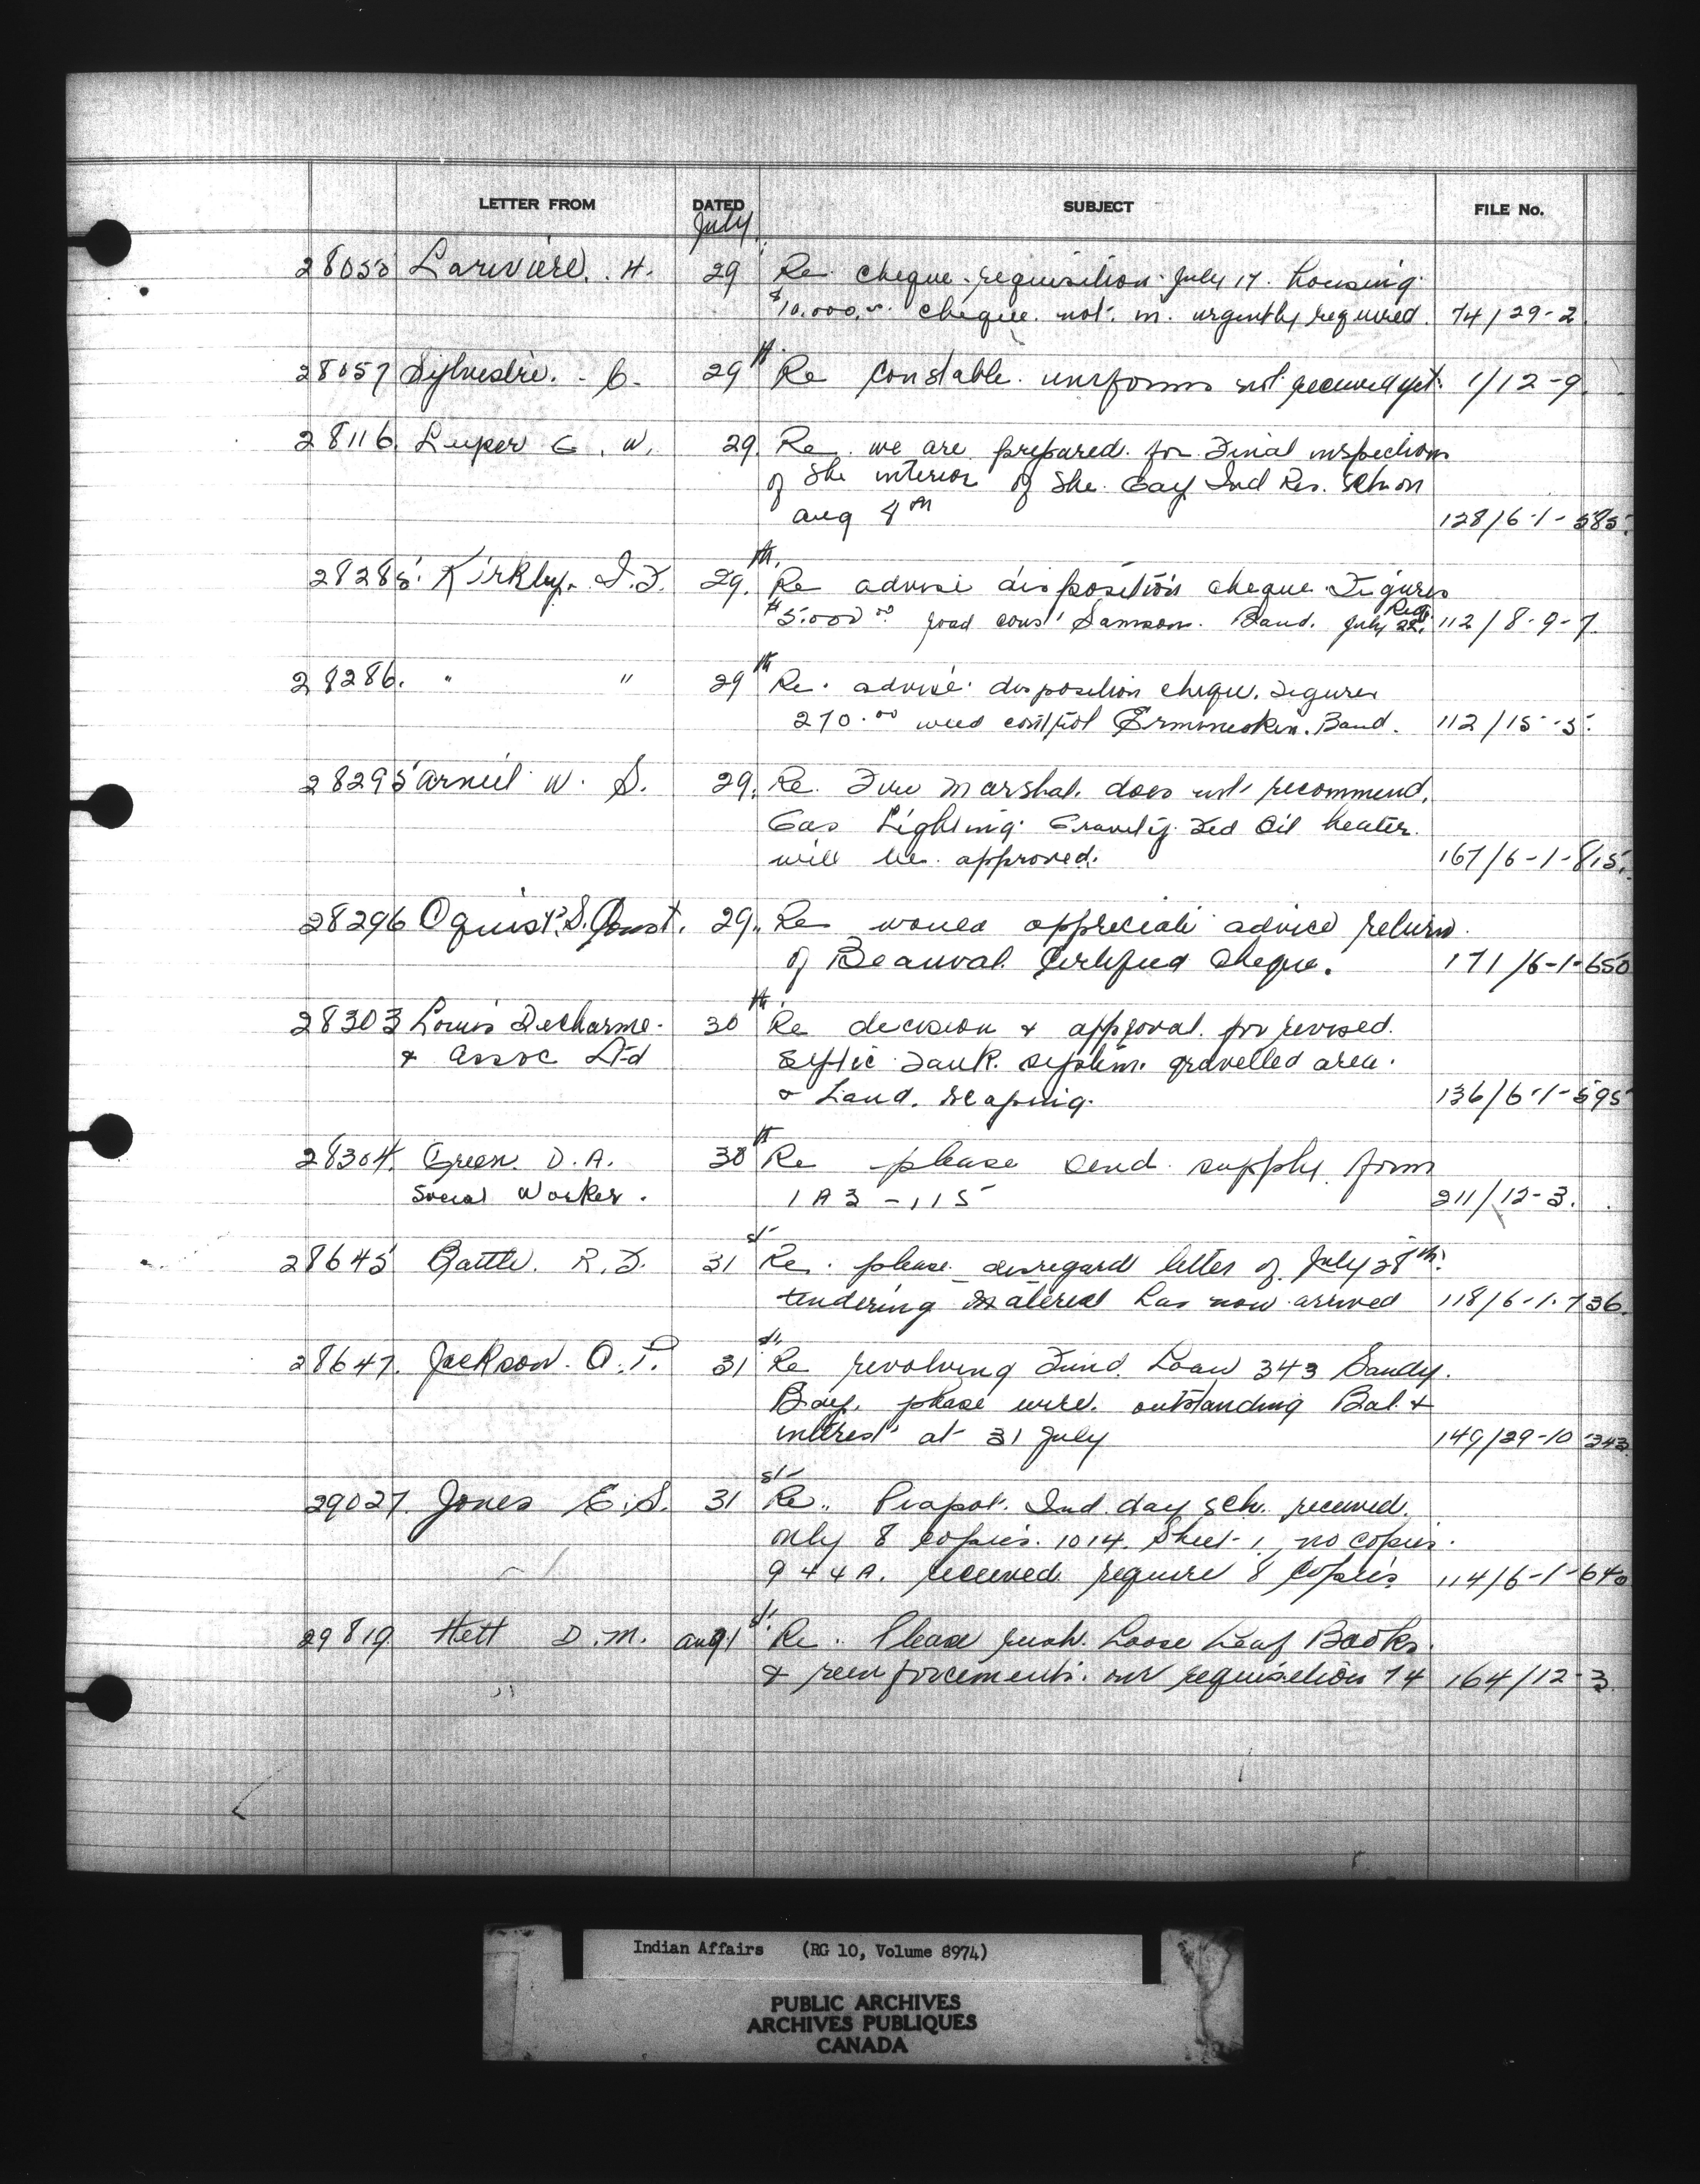 LETTER FROM DATED SUBJECT FILE No.
July
28055 Lariviere. H. 29 Re cheque requisition July 17. housing
$10.000.00 cheque not in urgently required. 74/29-2
28057 Sylvestre. C. 29th Re constable uniforms not received yet. 1/12-9
28116. Luper G. W. 29. Re we are prepared for Final inspection
of the interior of the Cay Ind Res. School
aug 4th 128/6-1-585.
28285. Kirkby. I.F. 29th. Re advise disposition cheque Figures
$5.000 00 road const Samson Band. July 22. 112/8-9-7
28286. " " 29th Re. advise disposition cheque. Figures
270.00 weed control Ermineskin. Band. 112/15-5.
28295 Arneil W. S. 29. Re. Fire Marshal. does not recommend.
Gas Lighting. Gravity Fed Oil heater.
will be approved. 167/6-1-815.
28296 Oquist. S. Const. 29. Re would appreciate advice return
of Beauval Certified Cheque. 171/6-1-650
28303 Louis Decharme. 30th Re decision & approval for revised.
& Assoc Ltd Septic Tank. system. gravelled area.
& Land. scaping. 136/6-1-595
28304. Green D.A. 30th Re please send supply form
Social Worker. 1A3-115 211/12-3.
28645 Battle. R.F. 31st Re. please disregard letter of July 28th.
tendering material has now arrived 118/6-1-736.
28647. Jackson. O.P. 31st. Re revolving Fund. Loan 343 Sandy.
Bay. please wire. outstanding Bal &
interest at 31 July 149/29-10 343
29027. Jones E.S. 31st Re. Ind. day sch. received.
only 8 copies. 1014. Sheet 1, no copies.
9 & 4A. received require 8 copies 114/6-1-640
29819 Hett D.M. aug 1st. Re. Please rush. Loose Leaf Books.
& reinforcements. our requisition 74 164/12-3.
Indian Affairs (RG 10, Volume 8974)
PUBLIC ARCHIVES
ARCHIVES PUBLIQUES
CANADA